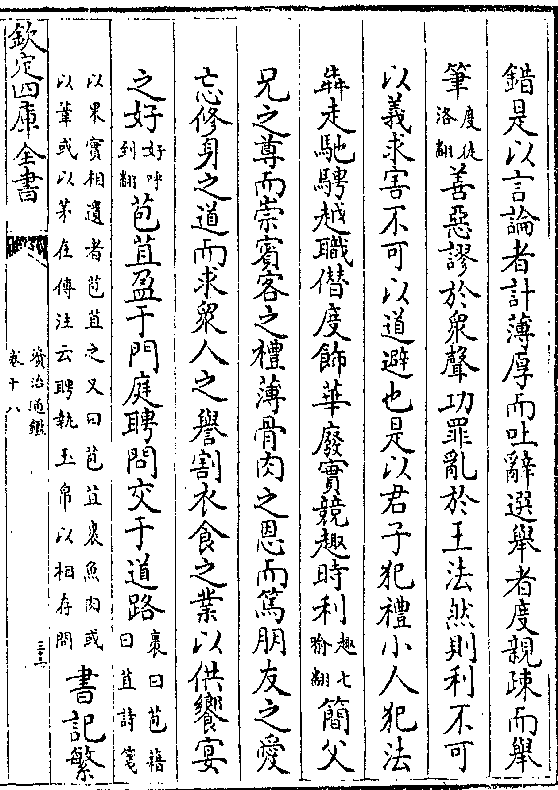 錯是以言論者計薄厚而吐辭選舉者度親疎而舉
筆度徒洛翻善惡謬於衆聲功罪亂於王法然則利不可
以義求害不可以道避也是以君子犯禮小人犯法
犇走馳騁越職僭度飾華廢實競趣時利趣七喻翻簡父
兄之尊而崇賓客之禮薄骨肉之恩而篤朋友之愛
忘修身之道而求衆人之譽割衣食之業以供饗宴
之好好呼到翻苞苴盈于門庭聘問交于道路裹曰苞藉曰苴詩箋
以果實相遺者苞苴之又曰苞苴裹魚肉或
以葦或以茅在傳注云聘執玉帛以相存問書記繁
欽定四庫全書
資治通鑑
卷十八
三十六